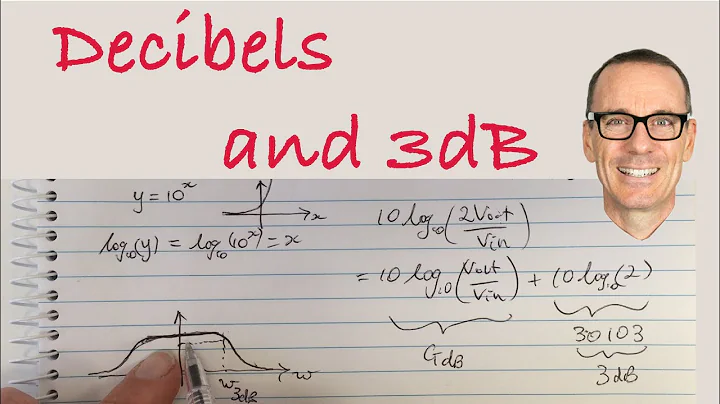 Decibels
and 3dB
y = 10^x
x
log₁₀(y) = log₁₀(10^x) = x
10 log₁₀(2Vout/Vin)
= 10 log₁₀(Vout/Vin) + 10 log₁₀(2)
GdB
3.0103
3dB
w
w3dB